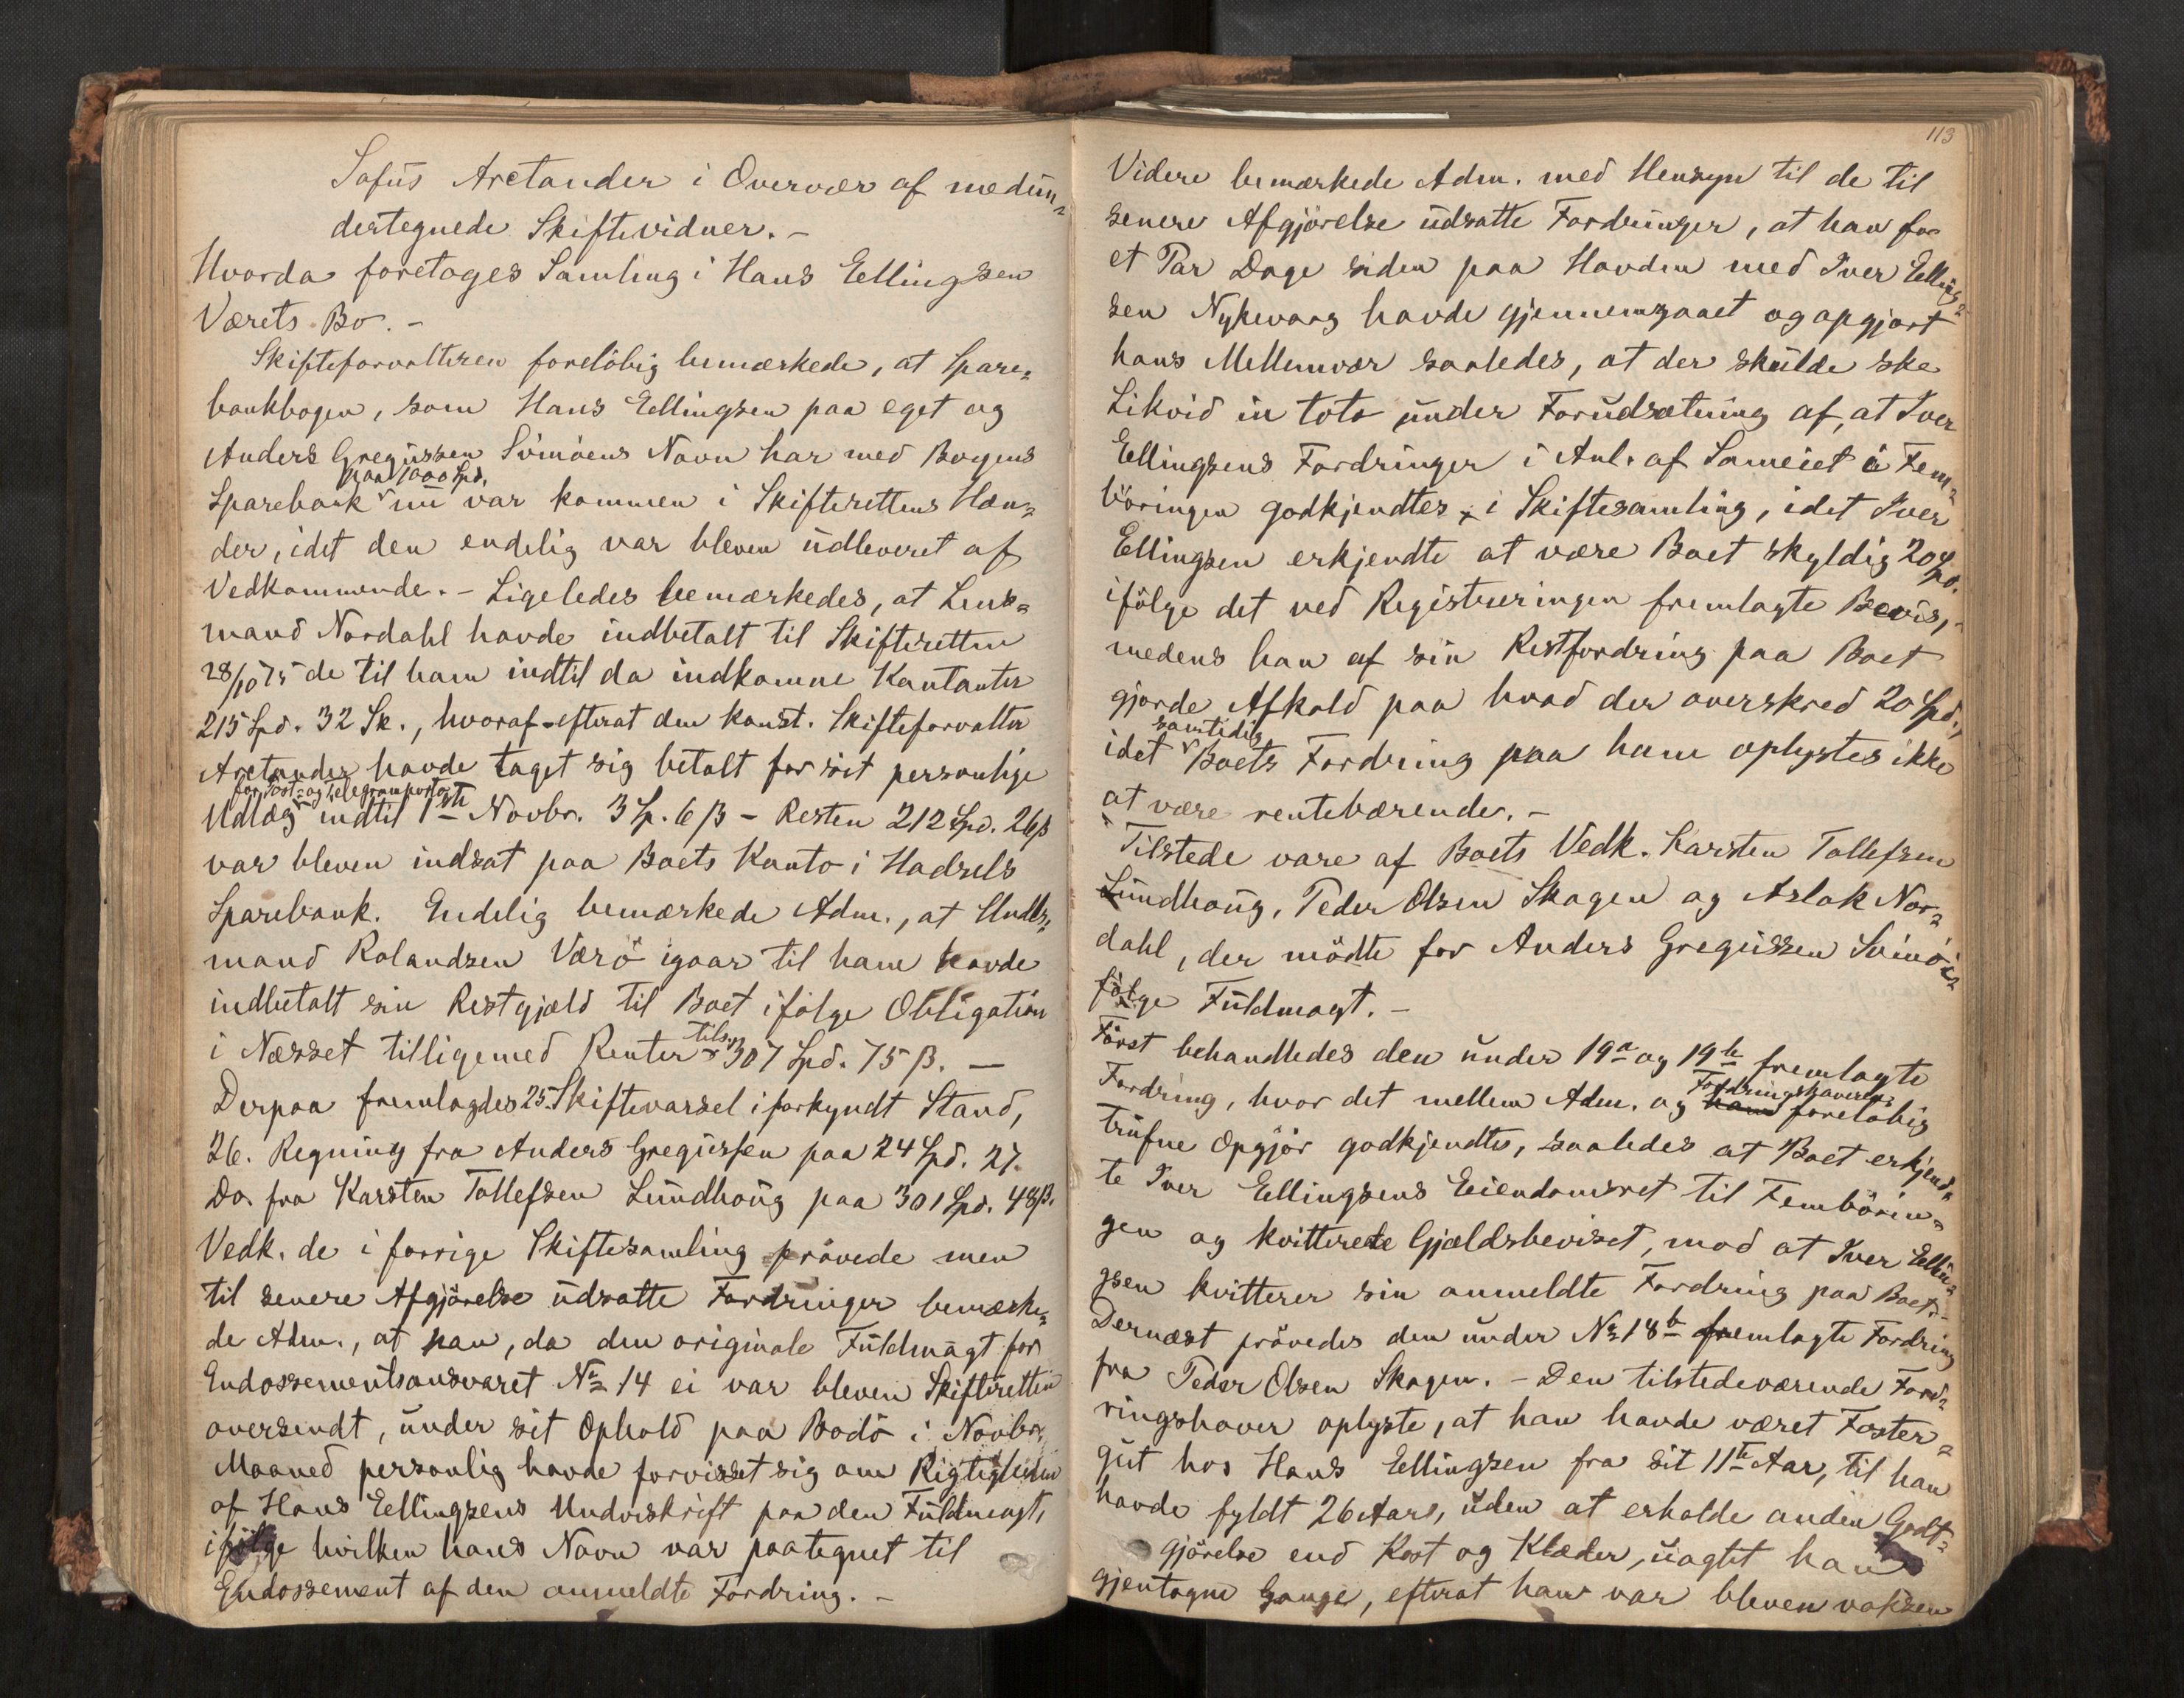 Sofus Arctander i Overvær af medun-
dertegnede Skiftevidner. -
Hvorda foretoges Samling i Hans Ellingsen
Værets Bo. -
Skifteforvalteren foreløbig bemærkede, at Spare-
bankbogen, som Hans Ellingsen paa eget og
Anders Gregussen Svinøens Navn har med Bogens
paa 1000 Spd.
Sparebank nu var kommen i Skifterettens Hæn-
der, idet den endelig var bleven udleveret af
Vedkommende. - Ligeledes bemærkedes, at Lens-
mand Nordahl havde indbetalt til Skifteretten
28/10 75 de til ham indtil da indkomne Kontanter
215 Spd. 32 Sk., hvoraf - efterat den konst. Skifteforvalter
Arctander havde taget sig betalt for sit personlige
for Post- og Telegramporto
Udlæg indtil 1ste Novbr. 3 Sp. 6 ß - Resten 212 Spd. 26 ß
var bleven indsat paa Boets Konto i Hadsels
Sparebank. Endelig bemærkede Adm., at Hndls-
mand Rolandsen Værö igaar til ham havde
indbetalt sin Restgjæld til Boet ifølge Obligation
i Næsset tilligemed Renter tils. 307 Spd. 75 ß. -
Derpaa fremlagdes 25. Skiftevarsel i forkyndt Stand,
26. Regning fra Anders Gregussen paa 24 Spd. 27.
Do. fra Karsten Tollefsen Lundhoug paa 301 Spd. 48 ß.
Vedk. de i forrige Skiftesamling prövede men
til senere Afgjörelse udsatte Fordringer bemærke-
de Adm., at han, da den originale Fuldmagt for
Endossementsansvaret No 14 ei var bleven Skifteretten
oversendt, under sit Ophold paa Bodö i Novbr.
Maaned personlig havde forvisset sig om Rigtigheden
af Hans Ellingsens Underskrift paa den Fuldmagt,
ifölge hvilken hans Navn var paategnet til
Endossement af den anmeldte Fordring. -
113
Videre bemærkede Adm. med Hensyn til de til
senere Afgjörelse udsatte Fordringer, at han for
et Par Dage siden paa Havden med Iver Elling-
sen Nykvaag havde gjennemgaaet og opgjort
hans Mellemvær saaledes, at der skulde ske
Likvid in toto under Forudsætning af, at Iver
Ellingsens Fordringer i Anl. af Sameiet i Fem-
böringen godkjendtes i Skiftesamling, idet Iver
Ellingsen erkjendte at være Boet skyldig 20 Spd.
ifölge det ved Registreringen fremlagte Bevis,
medens han af sin Restfordring paa Boet
gjorde Afkald paa hvad der overskred 20 Spd.,
samtidig
idet Boets Fordring paa ham oplystes ikke
at være rentebærende. -
Tilstede vare af Boets Vedk. Karsten Tollefsen
Lundhoug, Peder Olsen Skagen og Aslak Nor-
dahl, der mödte for Anders Gregussen Svinö i-
fölge Fuldmagt. -
Først behandledes den under 19a og 19b fremlagte
Fordringshaveren
Fordring, hvor det mellem Adm. og ham foreløbig
trufne Opgjör godkjendtes, saaledes at Boet erkjend-
te Iver Ellingsens Eiendomsret til Fembörin-
gen og kvitterede Gjældsbeviset, mod at Iver Ellin-
gsen kvitterer sin anmeldte Fordring paa Boet. -
Dernæst prövedes den under No 18b fremlagte Fordring
fra Peder Olsen Skagen. - Den tilstedeværende Ford-
ringshaver oplyste, at han havde været Foster-
gut hos Hans Ellingsen fra sit 11te Aar, til han
havde fyldt 26 Aars, uden at erholde anden Godt-
gjörelse end Kost og Klæder, uagtet han
gjentagne Gange, efterat han var bleven voksen